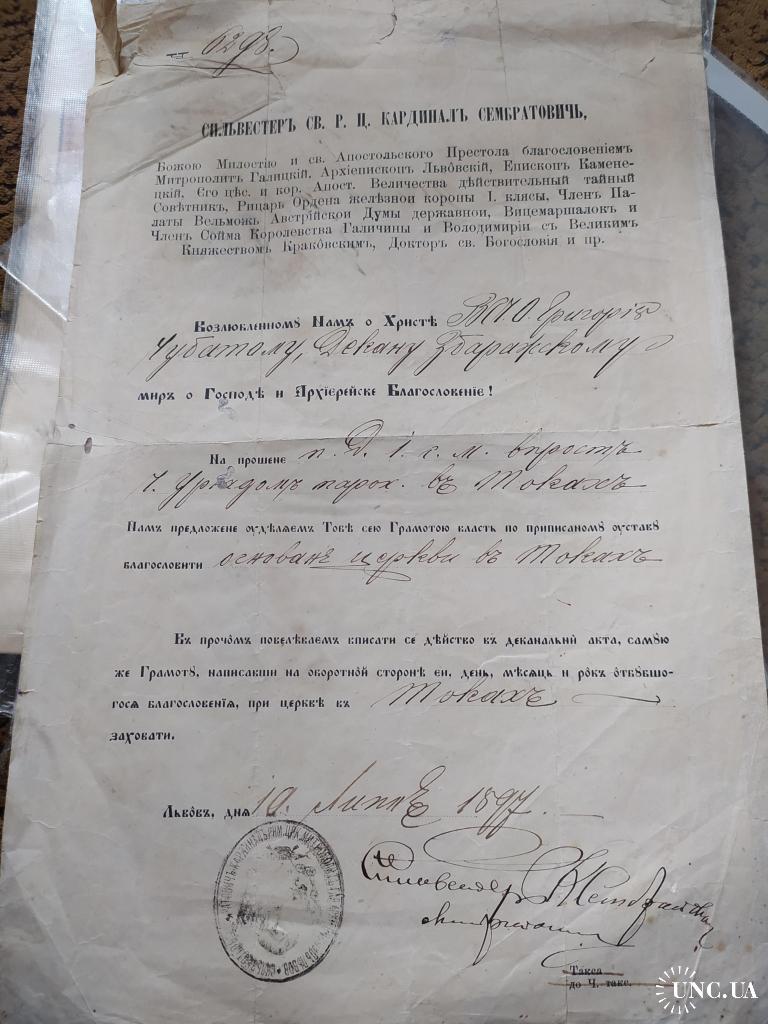 Н. 6298.
СИЛЬВЕСТЕРЪ СВ. Р. Ц. КАРДИНАЛЪ СЕМБРАТОВИЧЬ,
Божою Милостію и св. Апостольского Престола благословеніемъ
Митрополит Галицкій, Архіепископ Львôвскій, Епископ Камене-
цкій, Єго цѣс. и кор. Апост. Величества дѣйствительный тайный
Совѣтник, Рицарь Ордена желѣзной короны 1. клясы, Член Па-
латы Вельможь Австрійскои Думы державнои, Вицемаршалок и
Член Сойма Королевства Галичины и Володимиріи съ Великим
Княжеством Краковским, Доктор св. Богословія и пр.
Возлюбленномꙋ Намъ о Христѣ ВЧО. Григорію
Чубатому, Декану Збаражскому
мир о Господѣ и Архіерейске Благословеніе!
На прошене п. Д. 1. с. м. впростъ
ч. Урядомъ парох. въ Токахъ
Намъ предложене оудѣляємъ Тобѣ сею Грамотою власть по приписаномꙋ оуставꙋ
благословити основанє церкви въ Токахъ
Въ прочôмъ повелѣваемъ вписати се дѣйство въ деканальнй акта, самꙋю
же Грамотꙋ, написавши на оборотнôй сторонѣ еи, день, мѣсяць и рôкъ ôтбꙋвшо-
гося благословенія, при церквѣ въ Токахъ
заховати.
Львôвъ, дня 10. Липнѧ 1897.
Сильвестер К Сембратович
митрополит
Такса
до Ч. такс.
UNC.UA